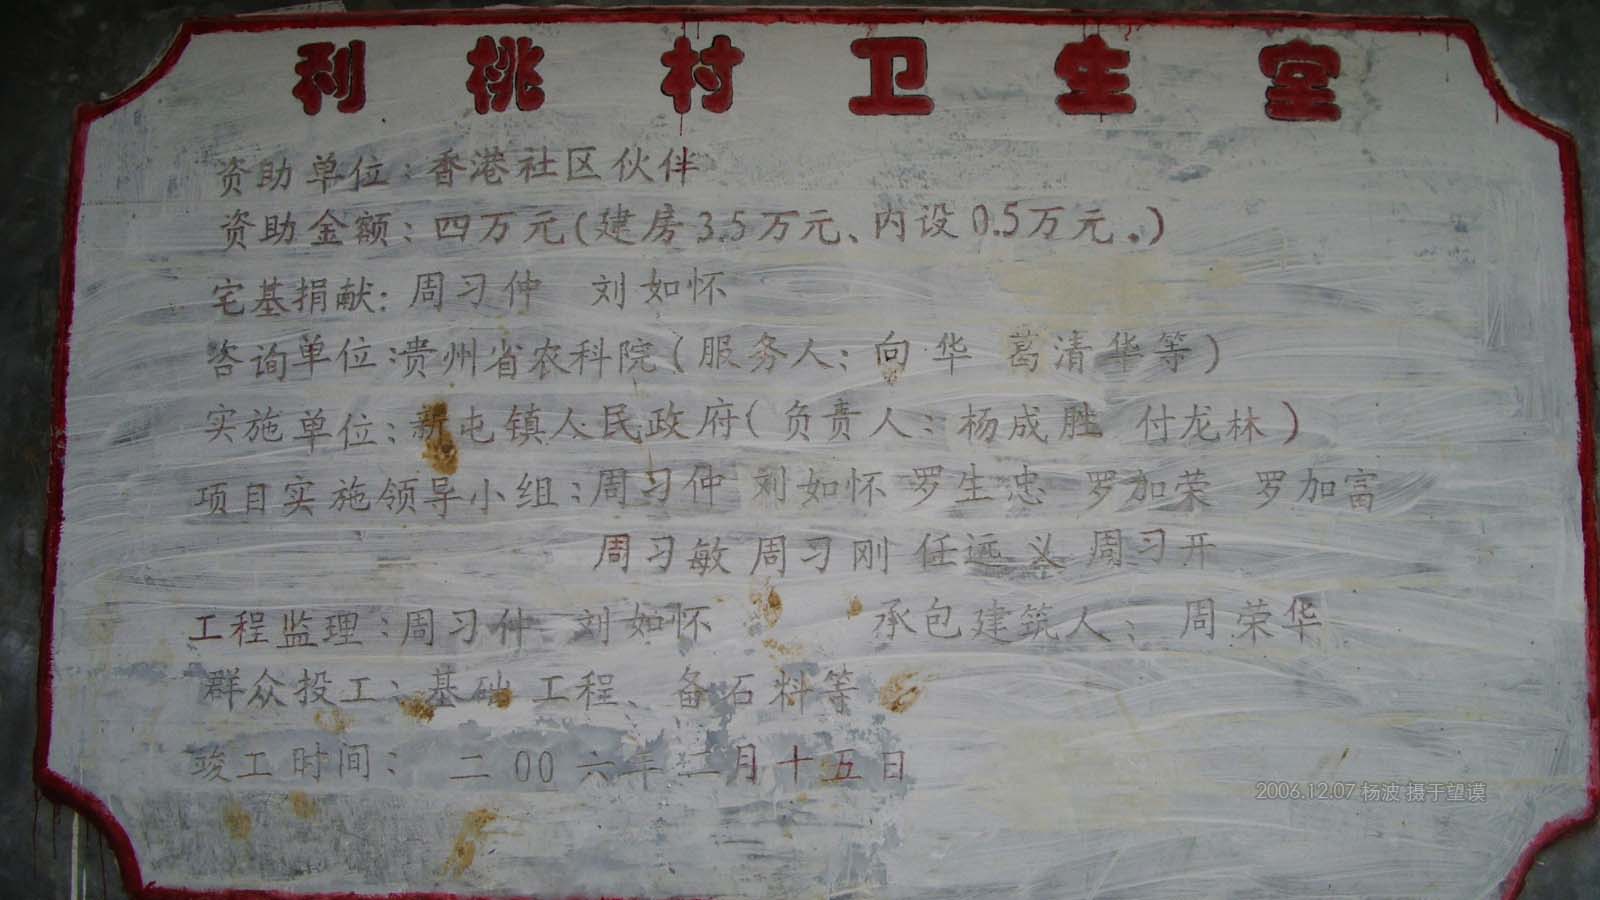 利桃村卫生室
资助单位：香港社区伙伴
资助金额：四万元(建房3.5万元、内设0.5万元.)
宅基捐献：周习仲 刘如怀
咨询单位：贵州省农科院(服务人：向华 葛清华等)
实施单位：新屯镇人民政府(负责人：杨成胜 付龙林)
项目实施领导小组：周习仲 刘如怀 罗生忠 罗加荣 罗加富
周习敏 周习刚 任远义 周习开
工程监理：周习仲 刘如怀 承包建筑人：周荣华
群众投工：基础工程、备石料等
竣工时间：二00六年二月十五日
2006.12.07 杨波 摄于望谟